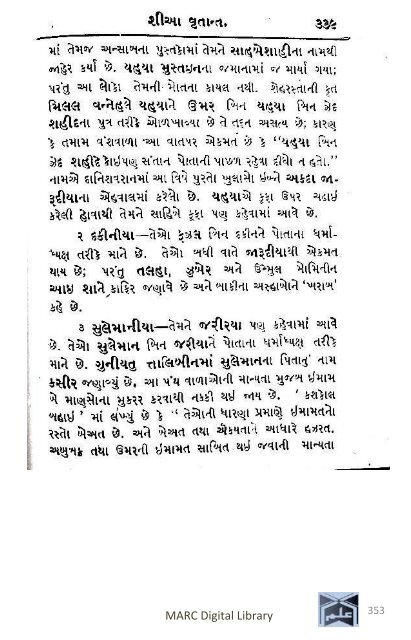 શીઆ વૃતાન્ત. ૩૩૯
માં તેમજ અન્સાબના પુસ્તકોમાં તેમને સાહુબેશાહીના નામથી
જાહેર કર્યા છે. યહયા મુસ્તઇનના જમાનામાં જ માર્યા ગયા;
પરંતુ આ લોકો તેમની મોતના કાયલ નથી. શેહરસ્તાની કૃત
મિલલ વન્નેહલે યહયાને ઉમર બિન યહયા બિન ઝેદ
શહીદના પુત્ર તરીકે ઓળખાવ્યા છે તે તદ્દન અસત્ય છે; કારણ
કે તમામ વંશવાળા આ વાતપર એકમત છે કે "યહયા બિન
ઝેદ શહીદે કોઇપણ સંતાન પોતાની પાછળ રહેવા દીધો ન હતો."
નામએ દાનિશવરાનમાં આ વિષે પુરતો ખુલાસો ઇબ્ને અકદા જા-
રૂદીયાના એહવાલમાં કરેલો છે. યહયાએ કૂફા ઉપર ચઢાઇ
કરેલી હોવાથી તેમને સાહિબે કૂફા પણ કહેવામાં આવે છે.
૨ દકીનીયા—તેઓ ફઝલ બિન દકીનને પોતાના ધર્મા-
ધ્યક્ષ તરીકે માને છે. તેઓ બધી વાતે જારૂદીયાથી એકમત
થાય છે; પરંતુ તલહા, ઝુબેર અને ઉમ્મુલ મોમિનીન
આઇશાને કાફિર જણાવે છે અને બાકીના અસ્હાબોને 'ખરાબ'
કહે છે.
૩ સુલેમાનીયા—તેમને જરીરયા પણ કહેવામાં આવે
છે. તેઓ સુલેમાન બિન જરીરને પોતાના ધર્માધ્યક્ષ તરીકે
માને છે. ગુનીયતુ ત્તાલિબીનમાં સુલેમાનના પિતાનું નામ
કસીર જણાવ્યું છે, આ પંથ વાળાઓની માન્યતા મુજબ ઇમામ
બે માણસોના મુકરર કરવાથી નક્કી થઇ જાય છે. 'કશકોલ
બહાઇ' માં લખ્યું છે કે "તેઓની ધારણા પ્રમાણે ઇમામતનો
રસ્તો બેઅત છે. અને બેઅત તથા ઐક્યતાને આધારે હઝરત.
અબુબક્ર તથા ઉમરની ઇમામત સાબિત થઇ જવાની માન્યતા
MARC Digital Library
353